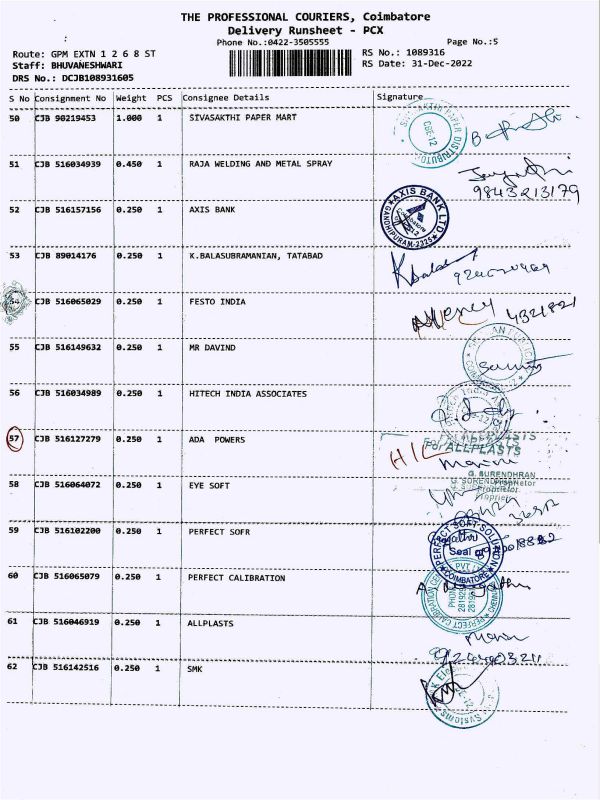 THE PROFESSIONAL COURIERS, Coimbatore
Delivery Runsheet - PCX
Phone No.:0422-3505555
Page No.:5
Route: GPM EXTN 1 2 6 8 ST
RS No.: 1089316
Staff: BHUVANESHWARI
RS Date: 31-Dec-2022
DRS No.: DCJB108931605
S No Consignment No Weight PCS Consignee Details Signature
50 CJB 90219453 1.000 1 SIVASAKTHI PAPER MART
CBE-12
51 CJB 516034939 0.450 1 RAJA WELDING AND METAL SPRAY
9843213179
52 CJB 516157156 0.250 1 AXIS BANK
AXIS BANK LTD
Coimbatore
GANDHIPURAM-2325
53 CJB 89014176 0.250 1 K.BALASUBRAMANIAN, TATABAD
54 CJB 516065029 0.250 1 FESTO INDIA
4321821
55 CJB 516149632 0.250 1 MR DAVIND
56 CJB 516034989 0.250 1 HITECH INDIA ASSOCIATES
57 CJB 516127279 0.250 1 ADA POWERS
For ALLPLASTS
G. SURENDHRAN
Proprietor
58 CJB 516064072 0.250 1 EYE SOFT
59 CJB 516102200 0.250 1 PERFECT SOFR
PERFECT SOFT SOLUTION
PVT LTD
COIMBATORE
60 CJB 516065079 0.250 1 PERFECT CALIBRATION
61 CJB 516046919 0.250 1 ALLPLASTS
62 CJB 516142516 0.250 1 SMK